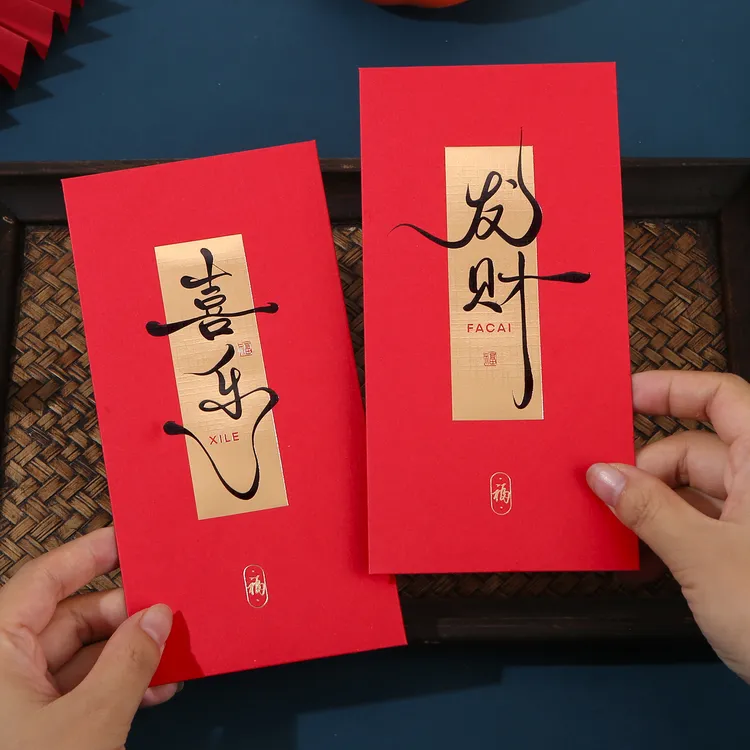 喜
乐
XILE
福
发
财
FACAI
福